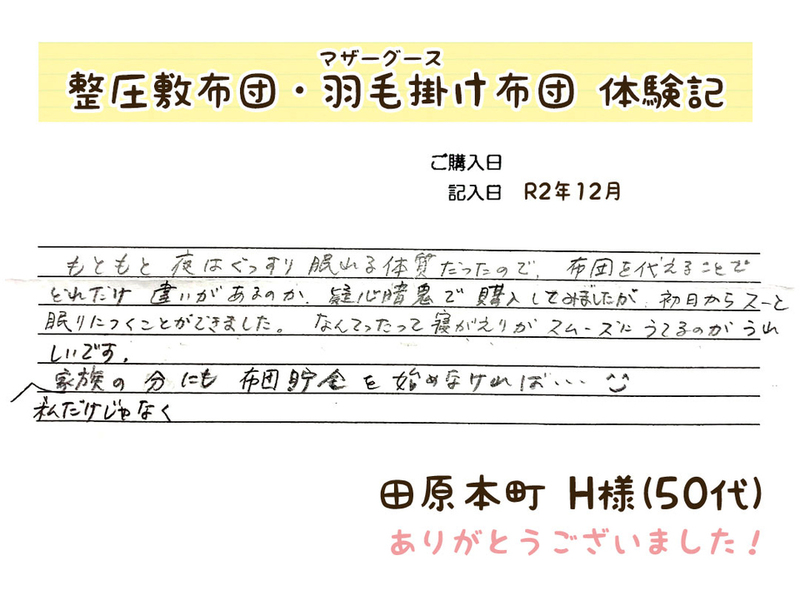 マザーグース
整圧敷布団・羽毛掛け布団 体験記
ご購入日
記入日 R2年12月
もともと 夜はぐっすり 眠れる体質だったので、布団を代えることで
どれだけ 違いがあるのか、疑心暗鬼で購入してみましたが、初日からスーと
眠りにつくことができました。 なんてったって寝がえりが スムーズにうてるのがうれ
しいです。
家族の 分にも 布団貯金を 始めなければ・・・
私だけじゃなく
田原本町 H様(50代)
ありがとうございました！